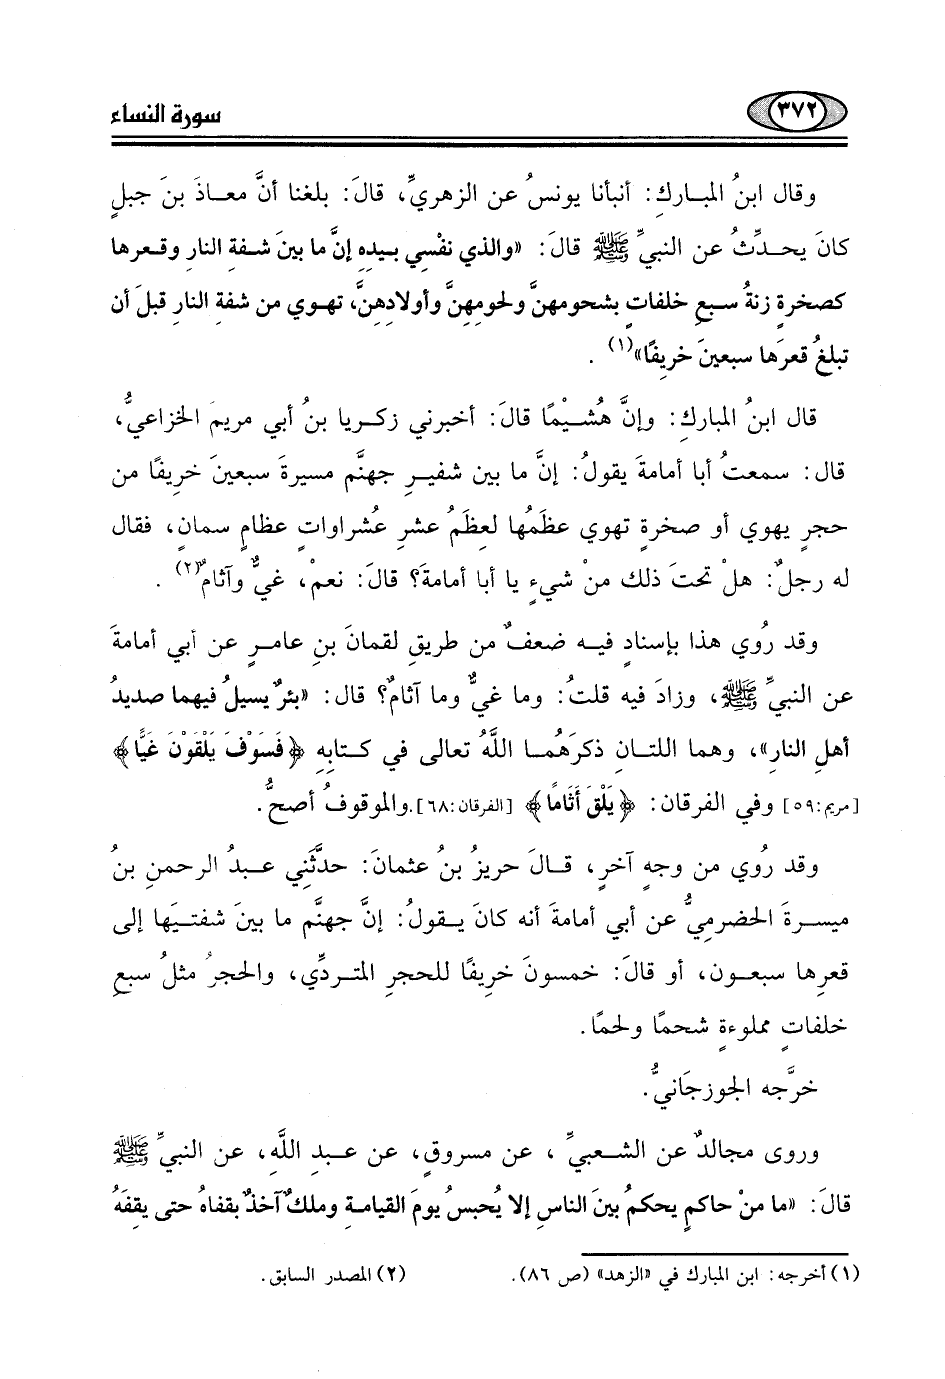 ٣٧٢
سورة النساء
وقال ابنُ المباركِ: أنبأنا يونسُ عن الزهريِّ، قالَ: بلغنا أنَّ معاذَ بنَ جبلٍ
كانَ يحدِّثُ عن النبيِّ ﷺ قالَ: «والذي نفْسي بيدِه إنَّ ما بينَ شفةِ النارِ وقعرِها
كصخرةٍ زنةُ سبعِ خلفاتٍ بشحومِهنَّ ولحومِهنَّ وأولادهِنَّ، تهوي من شفةِ النارِ قبلَ أن
تبلغُ قعرَها سبعينَ خريفًا»(١) .
قال ابنُ المباركِ: وإنَّ هُشيْمًا قالَ: أخبرني زكريا بنُ أبي مريمَ الخزاعيُّ،
قالَ: سمعتُ أبا أمامةَ يقولُ: إنَّ ما بين شفيرِ جهنَّم مسيرةَ سبعينَ خريفًا من
حجرٍ يهوي أو صخرةٍ تهوي عظَمُها لعِظَمُ عشرِ عُشراواتٍ عظامٍ سمانٍ، فقال
له رجلٌ: هلْ تحتَ ذلك منْ شيءٍ يا أبا أمامةَ؟ قالَ: نعمْ، غيٌّ وآثامٌ(٢) .
وقد رُوي هذا بإسنادٍ فيه ضعفٌ من طريقِ لقمانَ بنِ عامرٍ عن أبي أمامةَ
عن النبيِّ ﷺ، وزادَ فيه قلتُ: وما غيٌّ وما آثامٌ؟ قال: «بئرٌ يسيلُ فيهما صديدُ
أهلِ النارِ»، وهما اللتانِ ذكرَهُما اللَّهُ تعالى في كتابِهِ ﴿فَسَوْفَ يَلْقَوْنَ غَيًّا﴾
[مريم:٥٩] وفي الفرقان: ﴿يَلْقَ أَثَامًا﴾ [الفرقان:٦٨].والموقوفُ أصحُّ.
وقد رُوي من وجهٍ آخرٍ، قالَ حريزُ بنُ عثمانَ: حدَّثَني عبدُ الرحمنِ بنُ
ميسرةَ الحضرميُّ عن أبي أمامةَ أنه كانَ يقولُ: إنَّ جهنَّم ما بينَ شفتيَها إلى
قعرِها سبعون، أو قالَ: خمسونَ خريفًا للحجرِ المتردِّي، والحجرُ مثلُ سبعِ
خلفاتٍ مملوءةٍ شحمًا ولحمًا.
خرَّجه الجوزجَانيُّ.
وروى مجالدٌ عن الشعبيِّ ، عن مسروقٍ، عن عبدِ اللَّهِ، عن النبيِّ ﷺ
قالَ: «ما منْ حاكمٍ يحكمُ بينَ الناسِ إلا يُحبسُ يومَ القيامةِ وملكٌ آخذٌ بقفاهُ حتى يقِفَهُ
(١) أخرجه: ابن المبارك في «الزهد» (ص ٨٦).
(٢) المصدر السابق.